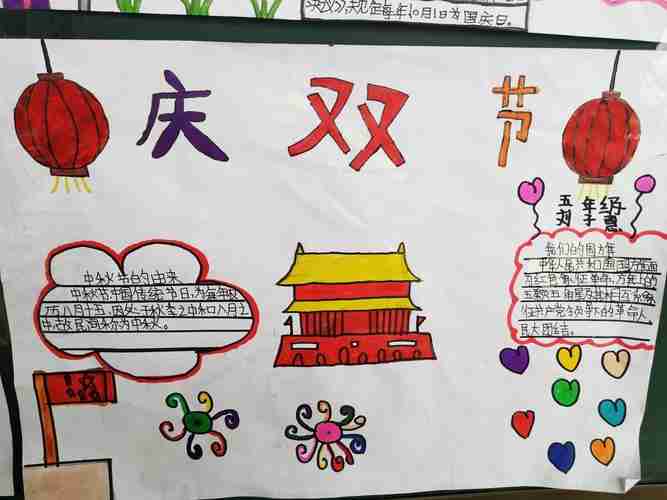 决议,规定每年10月1日为国庆日。
庆双节
五年级
刘子惠
中秋节的由来
中秋节为每年
八月十五,因处于秋季之中和八月之
中,故民间称为中秋。
我们的国
中华人民共和国国旗
为红月,象征革命,
五颗五角星及其相
征共产党领导下的革命人
民大团结。